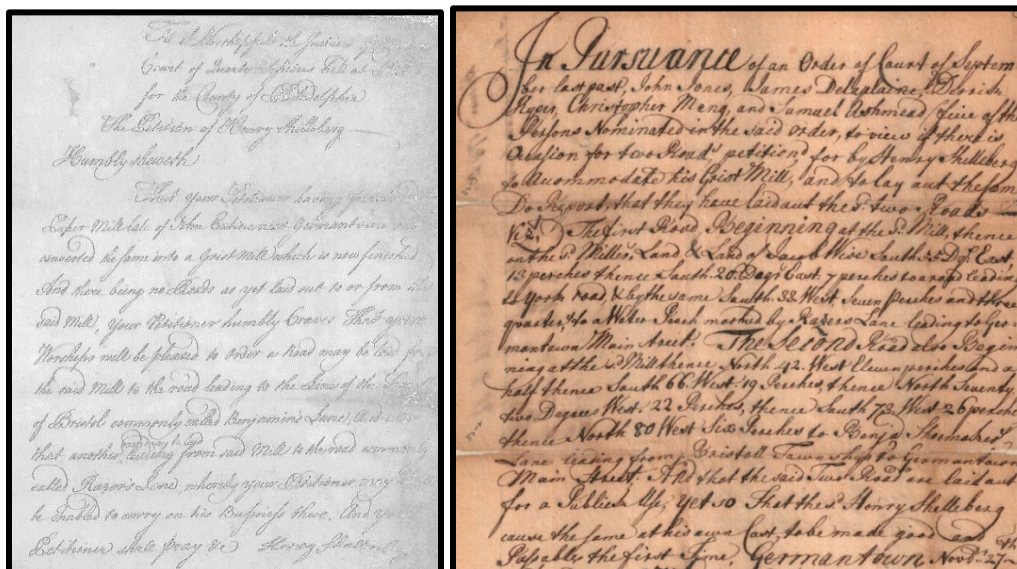 To y.e Worshipfull the Justices
Court of Quarter Sessions held at
for the County of Philadelphia
The Petition of Henry Shilleberg
Humbly sheweth
That your Petitioner having
Paper Mill late of John Germantown
converted the same into a Grist Mill which is new finished
And there being no Roads as yet laid out to or from
said Mill, Your Petitioner humbly Craves That your
Worships will be pleased to order a Road may be laid
the said Mill to the road leading to the Line of the
of Bristol commonly called Benjamin's Lane,
that another leading from said Mill to the road commonly
called Razor's Lane whereby your Petitioner may
be Enabled to carry on his Business there. And your
Petitioner shall pray &c Henry
In Pursuance of an Order of Court of Septem
ber last past, John Jones, James Delaplaine, Derrick
Ryger, Christopher Meng, and Samuel Ashmead, five of the
Persons Nominated in the said Order, to view if there is
Ocasion for two Roads petitiond for by Henry Shelleberg
to Accommodate his Grist Mill, and to lay out the same
Do Report, that they have laid out the sd. two Roads
Vizt. The first Road Beginning at the sd. Mill, thence
on the sd. Miller's Land, & Land of Jacob Wise South 25 Dgs. East
13 perches thence South 20 Degs. East, 7 perches to a road leading
to York road & by the same South 33 West Seven Perches and three
quarters to a Water Beach marked by Razers Lane leading to Ger
mantown Main Street. The Second Road also Begin
ning at the sd. Mill thence North 42 West Eleven perches and a
half thence South 66 West 19 Perches, thence North Seventy
two Degrees West 22 Perches, thence South 73 West 26 perches
thence North 80 West Six Perches to Benja. Shoemakers
Lane leading from Bristoll Township to Germantown
Main Street. And that the said Two Road are laid out
for a Publick Use, yet so That the sd. Henry Shelleberg
cause the same at his own Cost, to be made good and
Passable the first Time, Germantown Novbr. 27